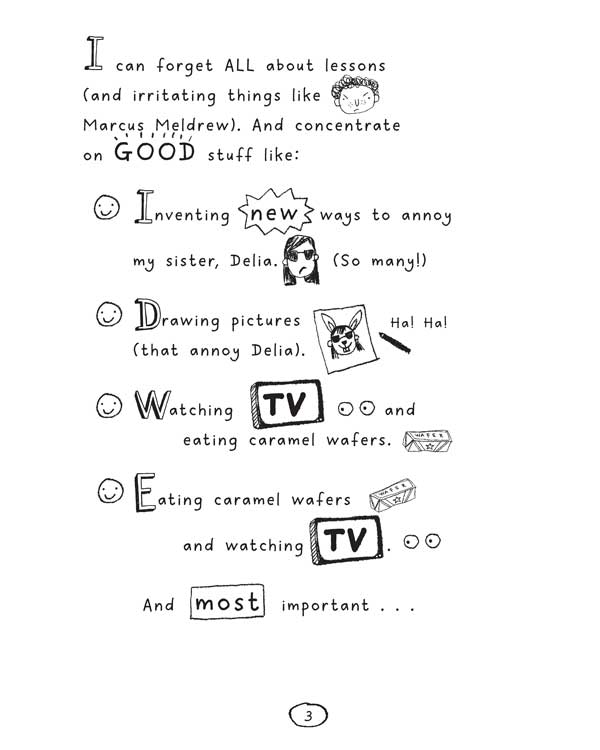 I can forget ALL about lessons
(and irritating things like
Marcus Meldrew). And concentrate
on GOOD stuff like:
Inventing new ways to annoy
my sister, Delia. (So many!)
Drawing pictures Ha! Ha!
(that annoy Delia).
Watching TV and
eating caramel wafers. WAFER
Eating caramel wafers WAFER
and watching TV.
And most important . . .
3